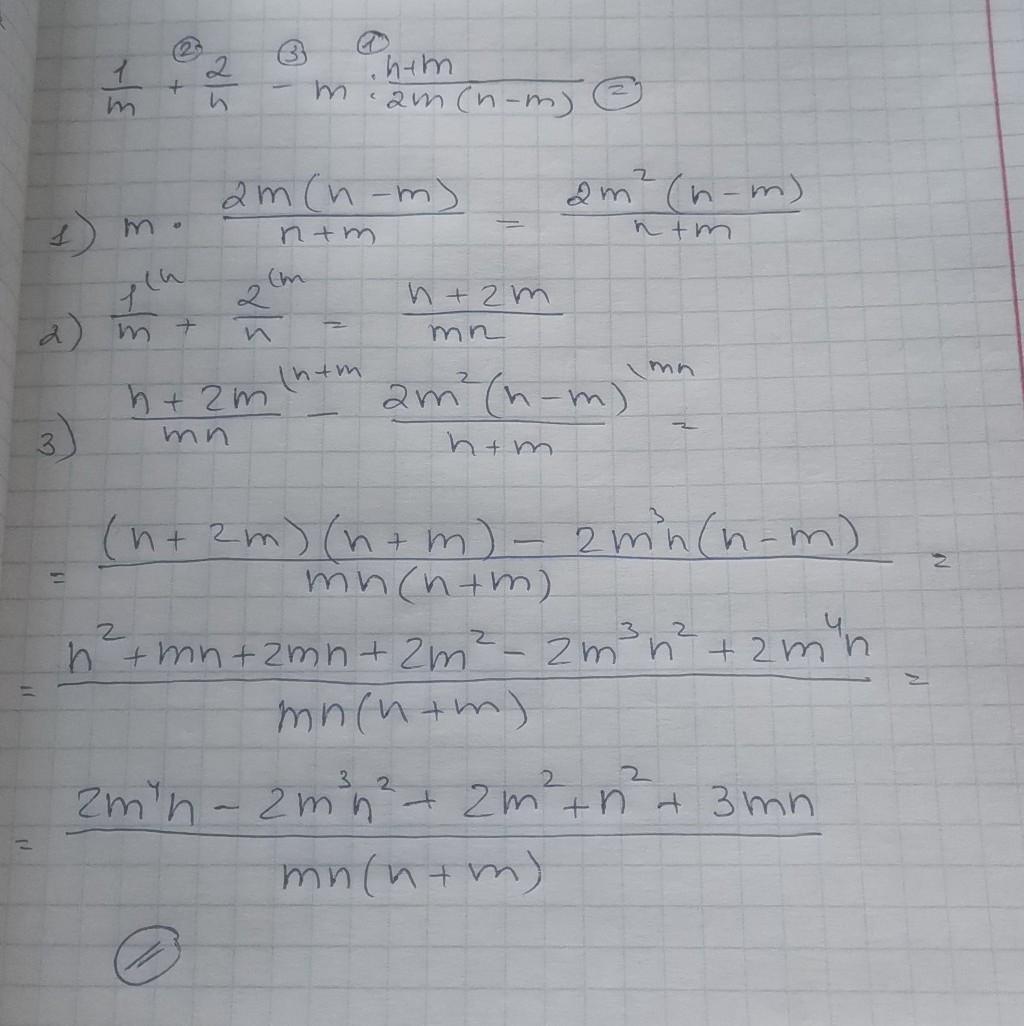 ② ③ ①
1/m + 2/n - m : (n+m)/(2m(n-m)) (=)
1) m · 2m(n-m)/(n+m) = 2m²(n-m)/(n+m)
2) 1/m ⁽ⁿ + 2/n ⁽ᵐ = (n+2m)/(mn)
3) (n+2m)/(mn) ⁽ⁿ⁺ᵐ - 2m²(n-m)/(n+m) \ᵐⁿ =
= ((n+2m)(n+m) - 2m³n(n-m))/(mn(n+m)) =
= (n²+mn+2mn+2m²-2m³n²+2m⁴n)/(mn(n+m)) =
= (2m⁴n-2m³n²+2m²+n²+3mn)/(mn(n+m))